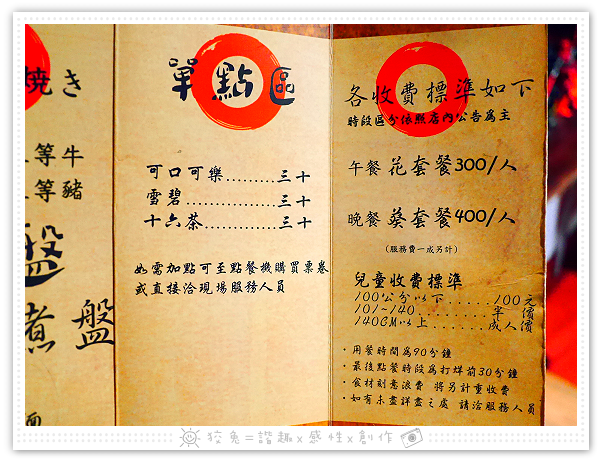 燒き
等牛
等豬
盤
煮 盤
單點區
可口可樂.........三十
雪碧..............三十
十六茶.............三十
如需加點可至點餐機購買票卷
或直接洽現場服務人員
各收費標準如下
時段區分依照店內公告為主
午餐 花套餐300/人
晚餐 葵套餐400/人
(服務費一成另計)
兒童收費標準
100公分以下.......100元
101~140..........半 價
140CM以上........成人價
·用餐時間為90分鐘
·最後點餐時段為打烊前30分鐘
·食材刻意浪費 將另計重收費
·如有未盡詳盡之處 請洽服務人員
狡兔=諧趣x感性x創作